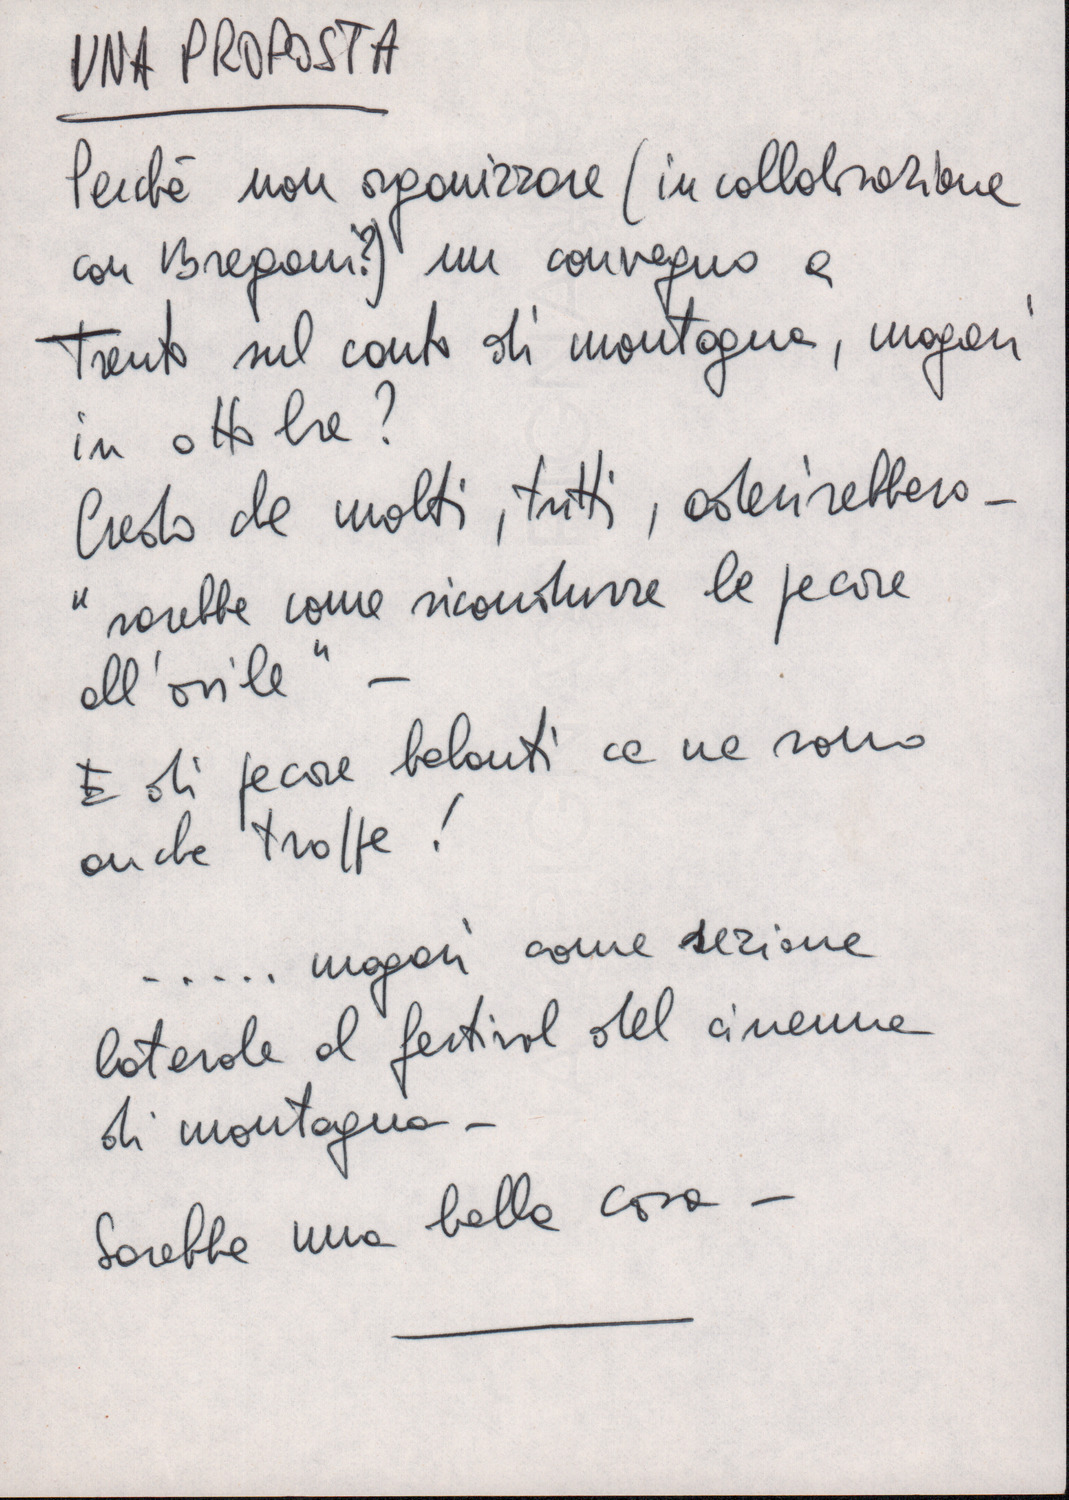 UNA PROPOSTA
Perchè non organizzare (in collaborazione
con Bregani?) un convegno a
Trento sul canto di montagna, magari
in ottobre?
Credo che molti, tutti, aderirebbero –
"sarebbe come ricondurre le pecore
all'ovile" –
E di pecore belanti ce ne sono
anche troppe!
..... magari come sezione
laterale al festival del cinema
di montagna –
Sarebbe una bella cosa –